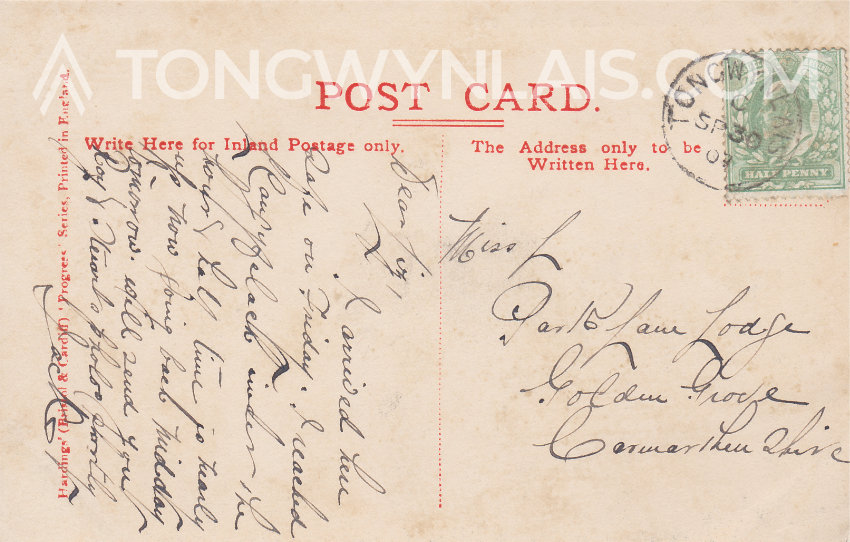 TONGWYNLAIS.COM
POST CARD.
Write Here for Inland Postage only.
The Address only to be
Written Here.
Hardings' (Bristol & Cardiff) "Progress" Series, Printed in England.
TONGWYNLAIS
SP 30
09
HALF PENNY
Dear
I arrived here
safe on Friday. I reached
place under the
hour & half time is nearly
up now going back midday
tomorrow. will send you
Roy & photos shortly
Jack
Miss
Park Lane Lodge
Golden Grove
Carmarthenshire